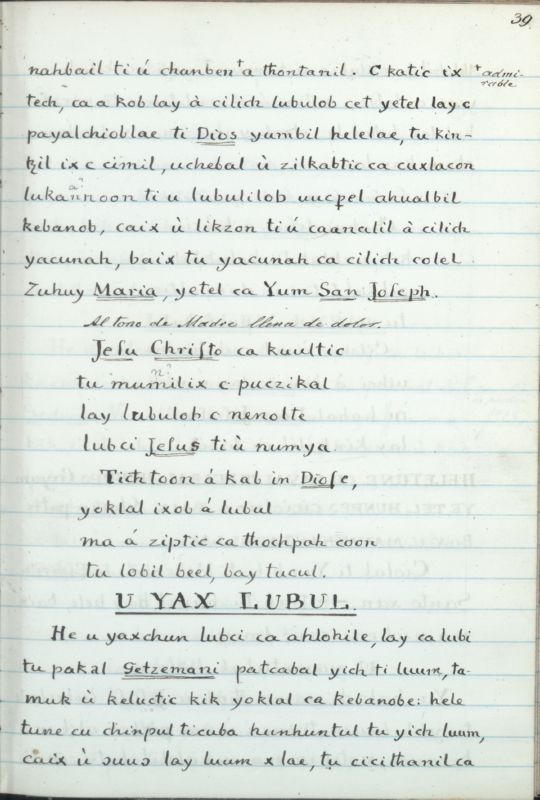 39.
nahbail ti ú chanben⁺a thontanil. C katic ix ⁺admi-
rable
tech, ca a kob lay à cilich lubulob cet yetel lay c
payalchioblae ti Dios yumbil helelae, tu kin-
ꜩil ix c cimil, uchebal ù zilkabtic ca cuxlacon
a?
lukannoon ti u lubulilob uucpel ahualbil
kebanob, caix ù likzon ti ú caanalil à cilich
yacunah, baix tu yacunah ca cilich colel
Zuhuy Maria, yetel ca Yum San Joſeph.
Al tono de Madre llena de dolor.
Jeſu Chriſto ca kuultic
n?
tu mumilix c puczikal
lay lubulob c nenolte
lubci Jeſus ti ù numya
Tichtoon á kab in Dioſe,
yoklal ixob á lubul
ma á ziptic ca thochpah coon
tu lobil beel, bay tucul.
U YAX LUBUL.
He u yaxchun lubci ca ahlohile, lay ca lubi
tu pakal Getzemani patcabal yich ti luum, ta-
muk ù keluctic kik yoklal ca kebanobe: hele
tune cu chinpul ti cuba hunhuntul tu yich luum,
caix ù ɔuuɔ lay luum x lae, tu cicithanil ca